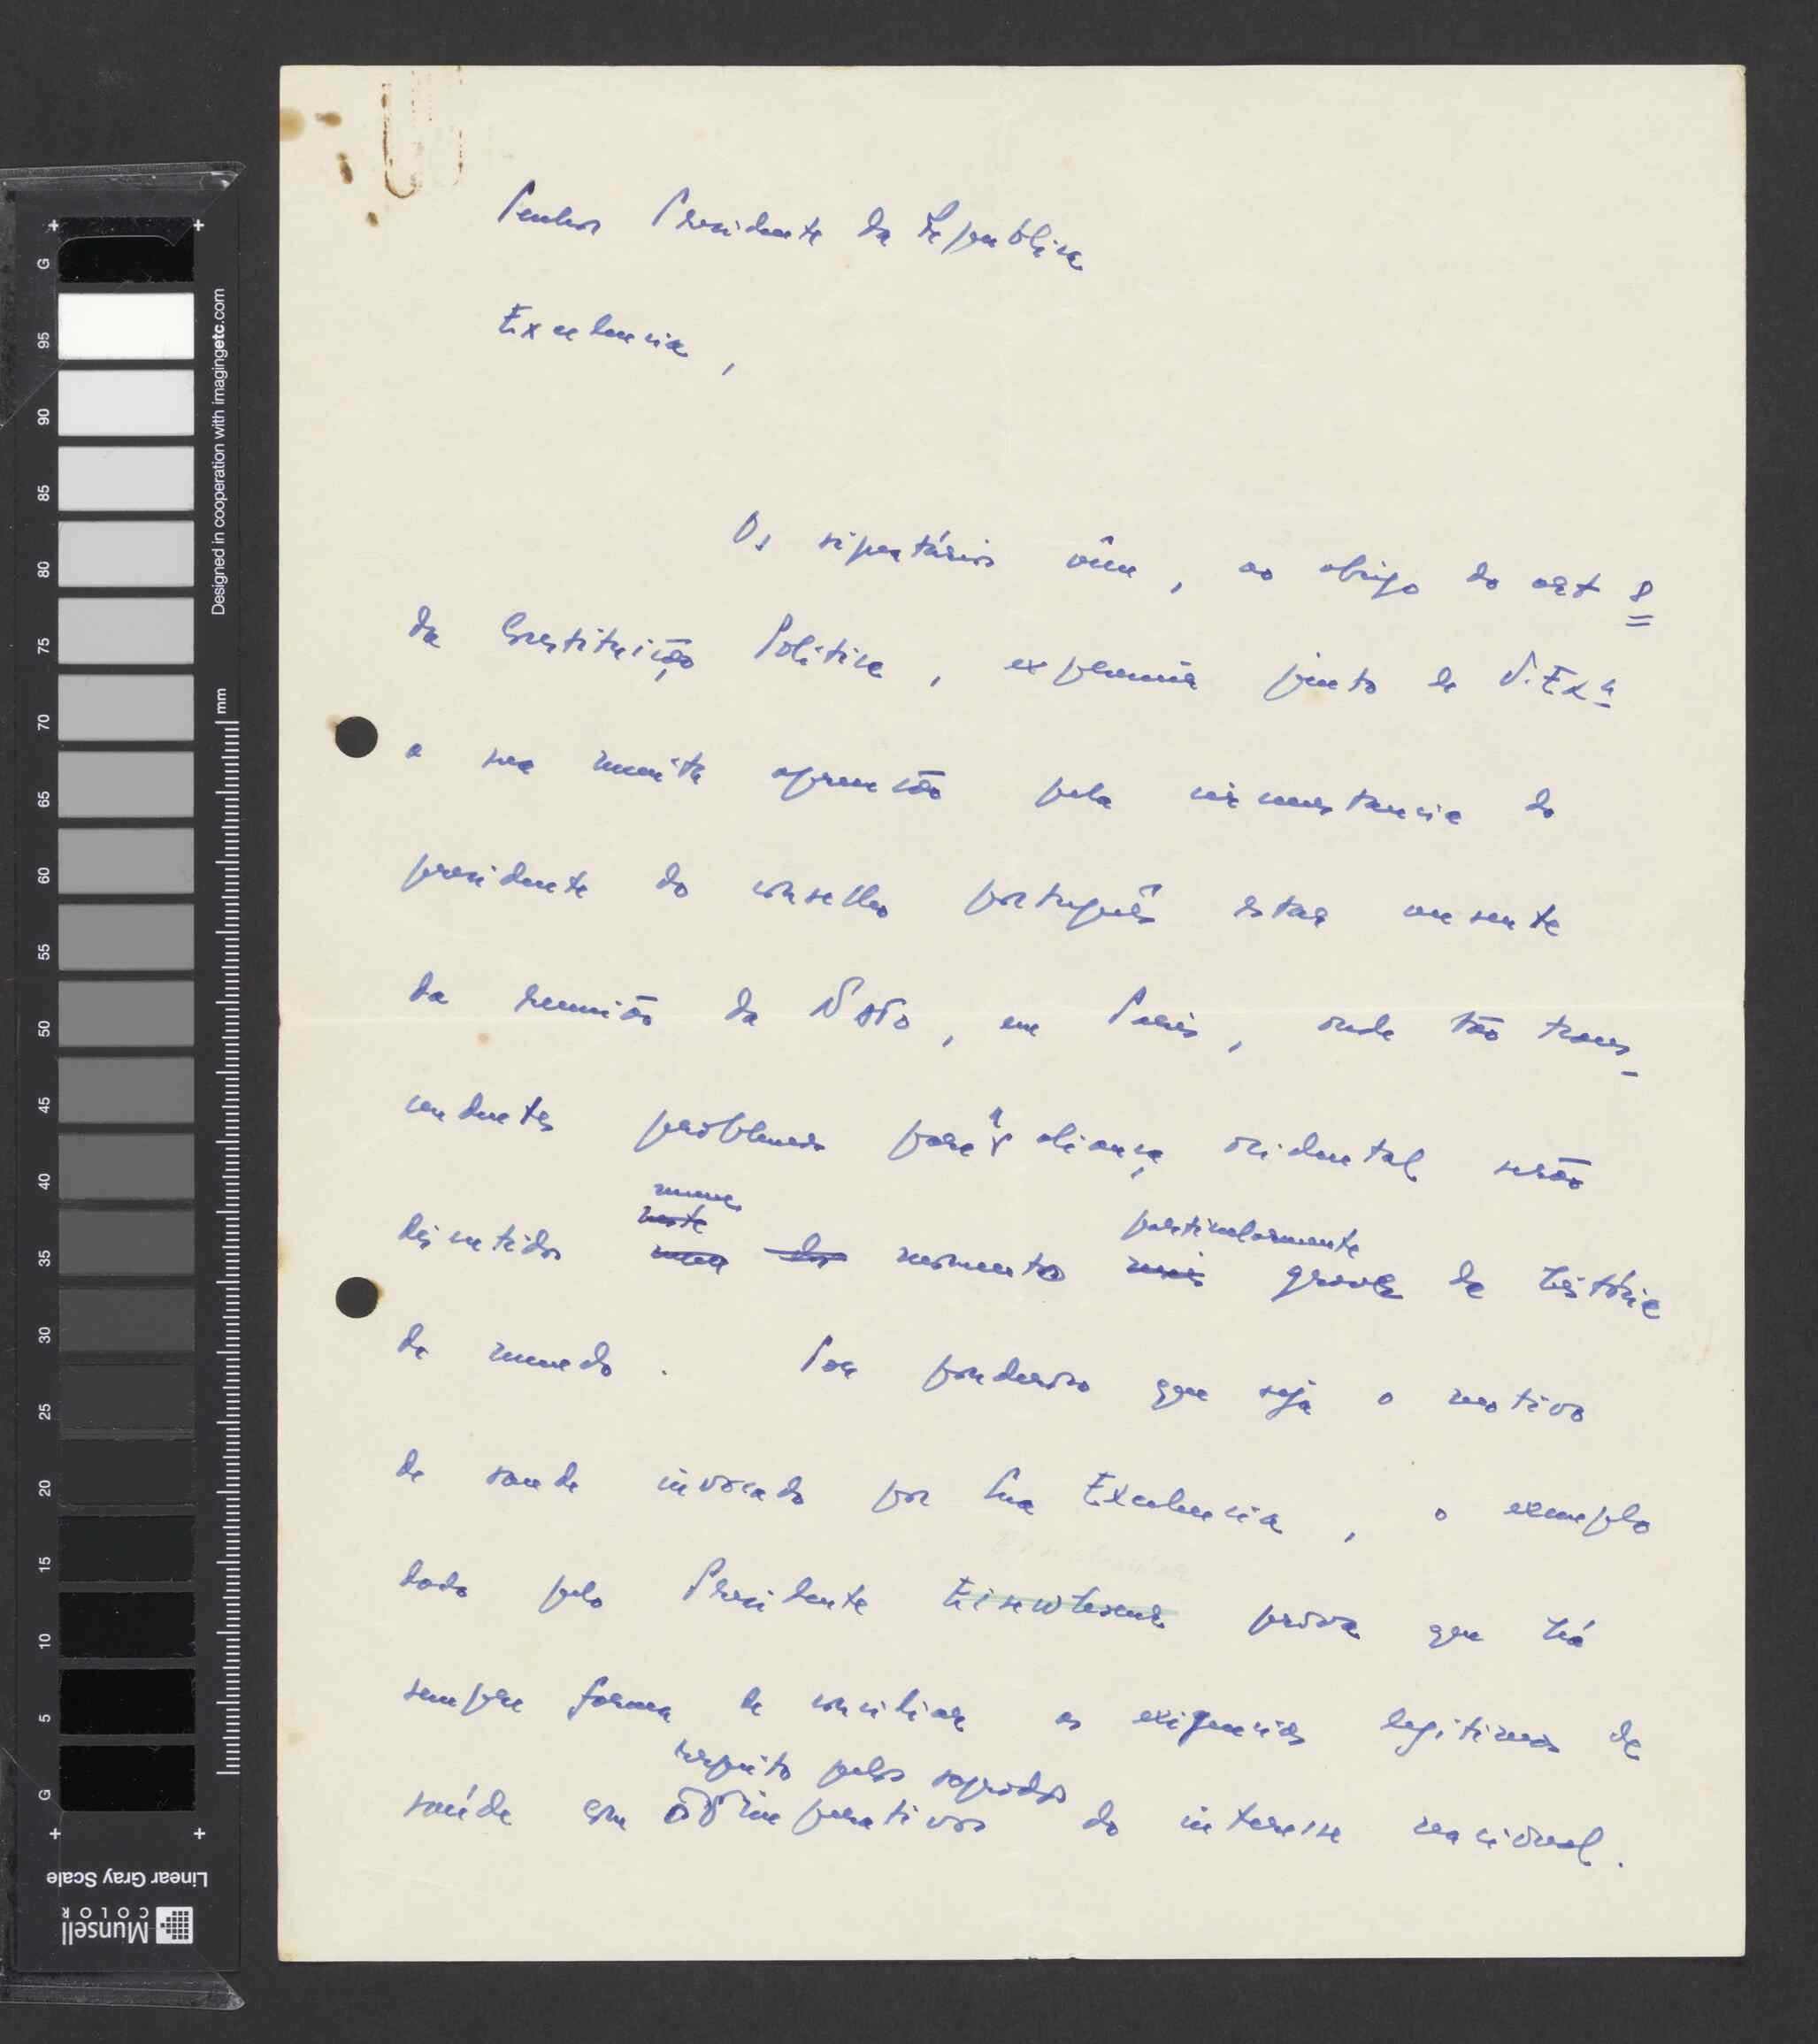 Senhor Presidente da Republica
Excelencia,
Os signatários vêm, ao abrigo do art 8
da Constituição Politica, exprimir junto de V. Exª
a sua muita apreensão pela circunstancia do
presidente do conselho português estar ausente
da reunião da NATO, em Paris, onde tão trans-
cendentes problemas para a aliança ocidental serão
num
neste
particularmente
discutidos num dos momento mais grave da história
do mundo. Por ponderoso que seja o motivo
de saude invocado por Sua Excelencia, o exemplo
dado pelo Presidente Eisenhower prova que há
sempre forma de conciliar as exigencias legitimas da
respeito pelos sagrados
saúde com o imperativos do interesse nacional.
G
95
90
85
80
75
70
65
60
55
50
45
40
35
30
25
20
15
10
5
G
Designed in cooperation with imagingetc.com
mm
Linear Gray Scale
Munsell
COLOR